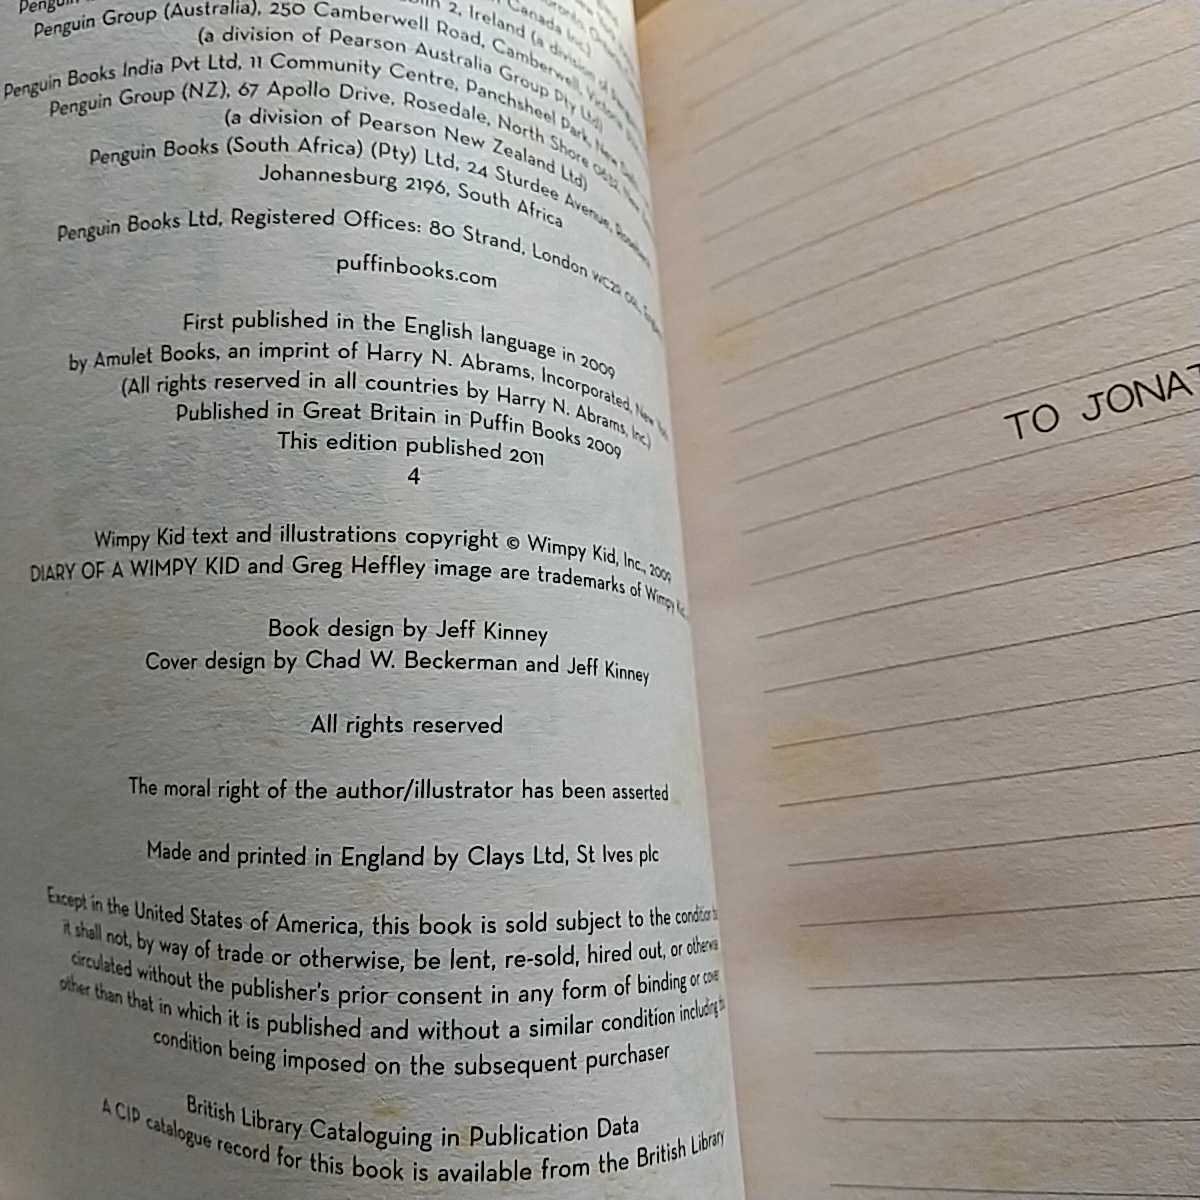 Penguin
2, Ireland (a division of
Canada Inc.)
Penguin Group (Australia), 250 Camberwell Road, Camberwell, Victoria
(a division of Pearson Australia Group Pty Ltd)
Penguin Books India Pvt Ltd, 11 Community Centre, Panchsheel Park, New Delhi
Penguin Group (NZ), 67 Apollo Drive, Rosedale, North Shore 0632, New
(a division of Pearson New Zealand Ltd)
Penguin Books (South Africa) (Pty) Ltd, 24 Sturdee Avenue, Rosebank
Johannesburg 2196, South Africa
Penguin Books Ltd, Registered Offices: 80 Strand, London WC2R 0RL, England
puffinbooks.com
First published in the English language in 2009
by Amulet Books, an imprint of Harry N. Abrams, Incorporated, New York
(All rights reserved in all countries by Harry N. Abrams, Inc.)
Published in Great Britain in Puffin Books 2009
This edition published 2011
4
Wimpy Kid text and illustrations copyright © Wimpy Kid, Inc., 2009
DIARY OF A WIMPY KID and Greg Heffley image are trademarks of Wimpy Kid,
Book design by Jeff Kinney
Cover design by Chad W. Beckerman and Jeff Kinney
All rights reserved
The moral right of the author/illustrator has been asserted
Made and printed in England by Clays Ltd, St Ives plc
Except in the United States of America, this book is sold subject to the condition
it shall not, by way of trade or otherwise, be lent, re-sold, hired out, or otherwise
circulated without the publisher's prior consent in any form of binding or cover
other than that in which it is published and without a similar condition including
condition being imposed on the subsequent purchaser
British Library Cataloguing in Publication Data
A CIP catalogue record for this book is available from the British Library
TO JONAT